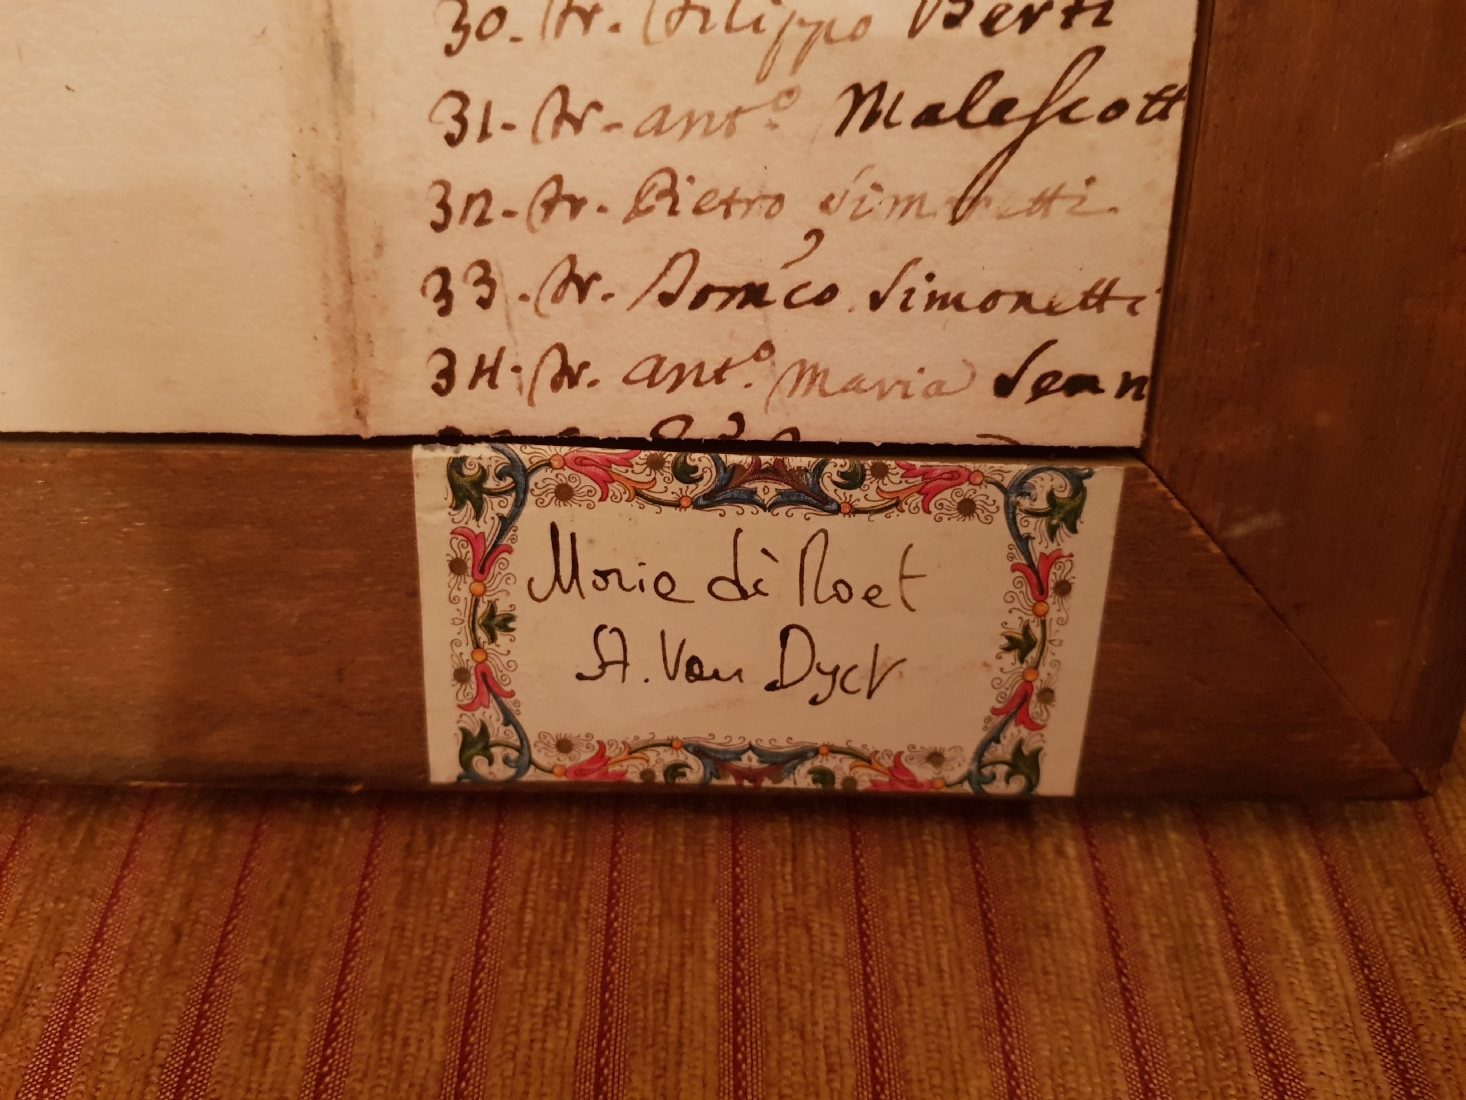 30. Fr. Filippo Berti
31. Fr. Ant.o Malescott
32. Fr. Pietro Simonetti.
33. Fr. Dom.co Simonetti
34. Fr. Ant.o Maria
Marie di Roet
A. Van Dyck